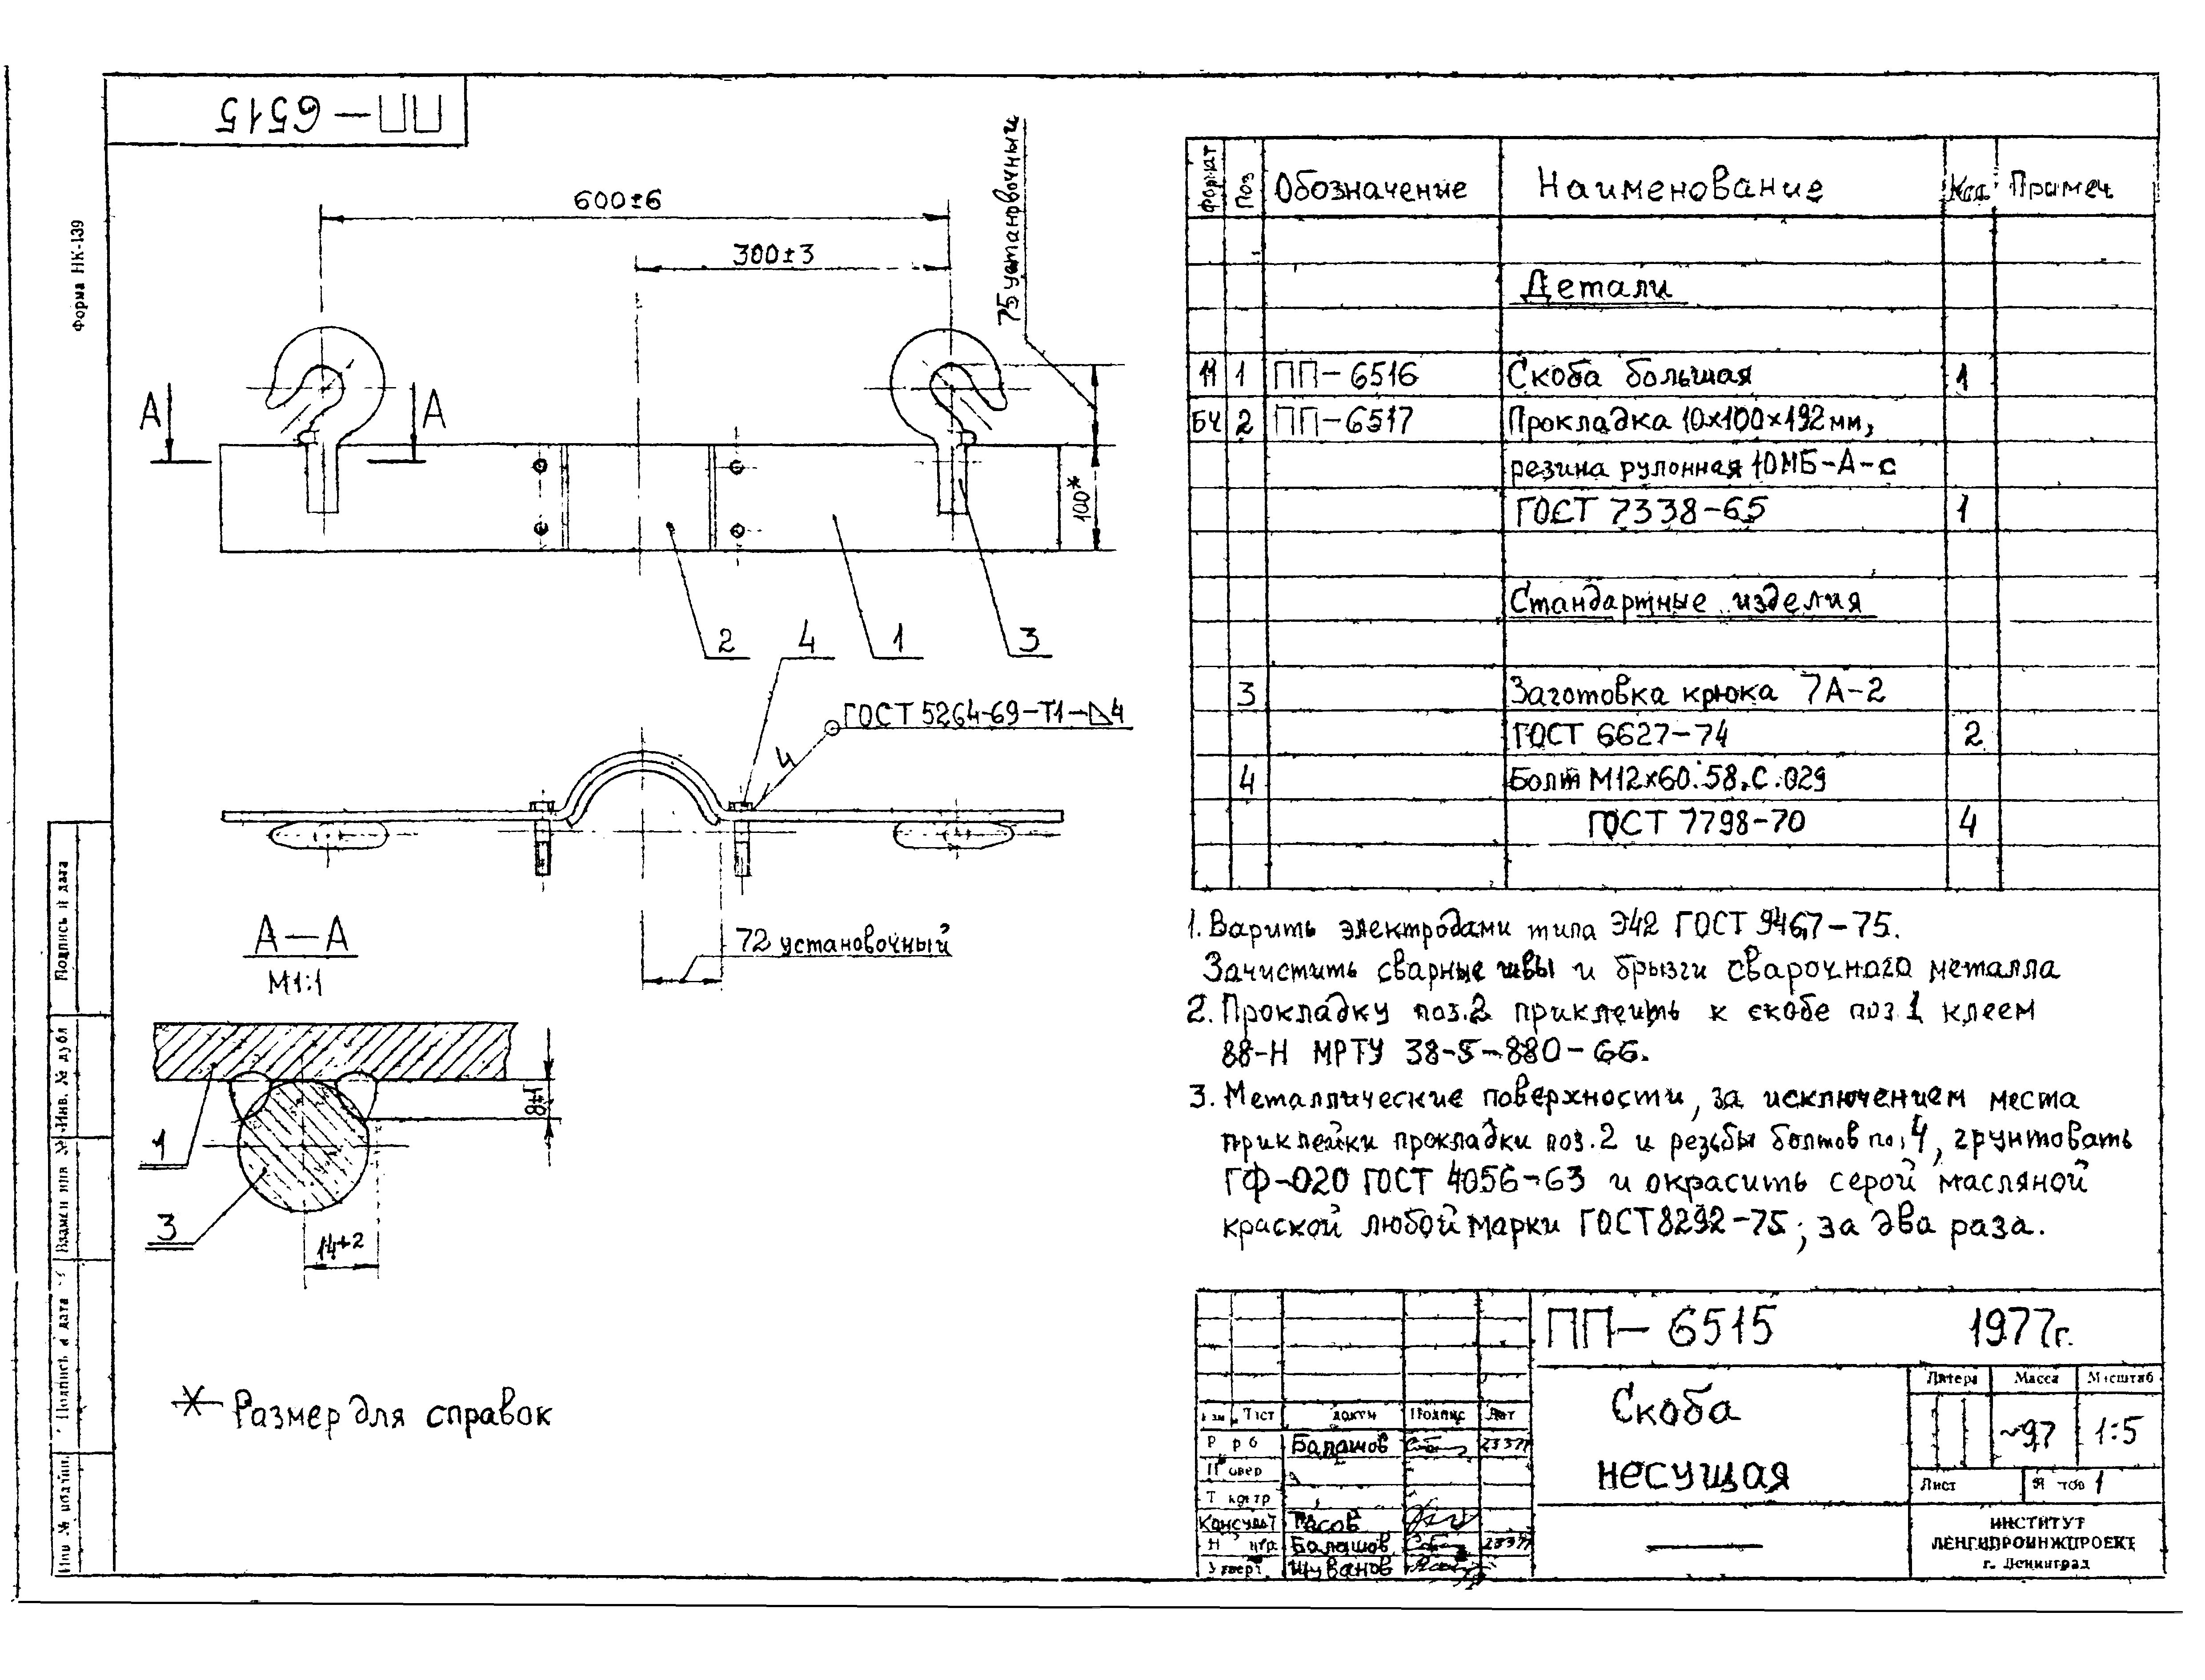 ПП-6515
Форма НК-139
600±6
300±3
75 установочный
А
А
100*
2
4
1
3
ГОСТ 5264-69-Т1-⊿4
4
72 установочный
А-А
М1:1
8±1
1
3
14+2
* Размер для справок
Формат Поз Обозначение Наименование Кол. Примеч
Детали
11 1 ПП-6516 Скоба большая 1
БЧ 2 ПП-6517 Прокладка 10х100х192мм,
резина рулонная 10МБ-А-с
ГОСТ 7338-65 1
Стандартные изделия
3 Заготовка крюка 7А-2
ГОСТ 6627-74 2
4 Болт М12х60.58.С.029
ГОСТ 7798-70 4
1. Варить электродами типа Э42 ГОСТ 9467-75.
Зачистить сварные швы и брызги сварочного металла
2. Прокладку поз.2 приклеить к скобе поз.1 клеем
88-Н МРТУ 38-5-880-66.
3. Металлические поверхности, за исключением места
приклейки прокладки поз.2 и резьбы болтов по. 4, грунтовать
ГФ-020 ГОСТ 4056-63 и окрасить серой масляной
краской любой марки ГОСТ 8292-75; за два раза.
Подпись и дата
Инв. № дубл
Взамен инв №
Подпись и дата
ПП-6515 1977г.
Скоба
несущая
Литера Масса Масштаб
~9,7 1:5
Лист 1
докум Подпис
Балашов
Консульт Тасов
Балашов
Шуванов
ИНСТИТУТ
ЛЕНГИПРОИНЖПРОЕКТ
г. Ленинград